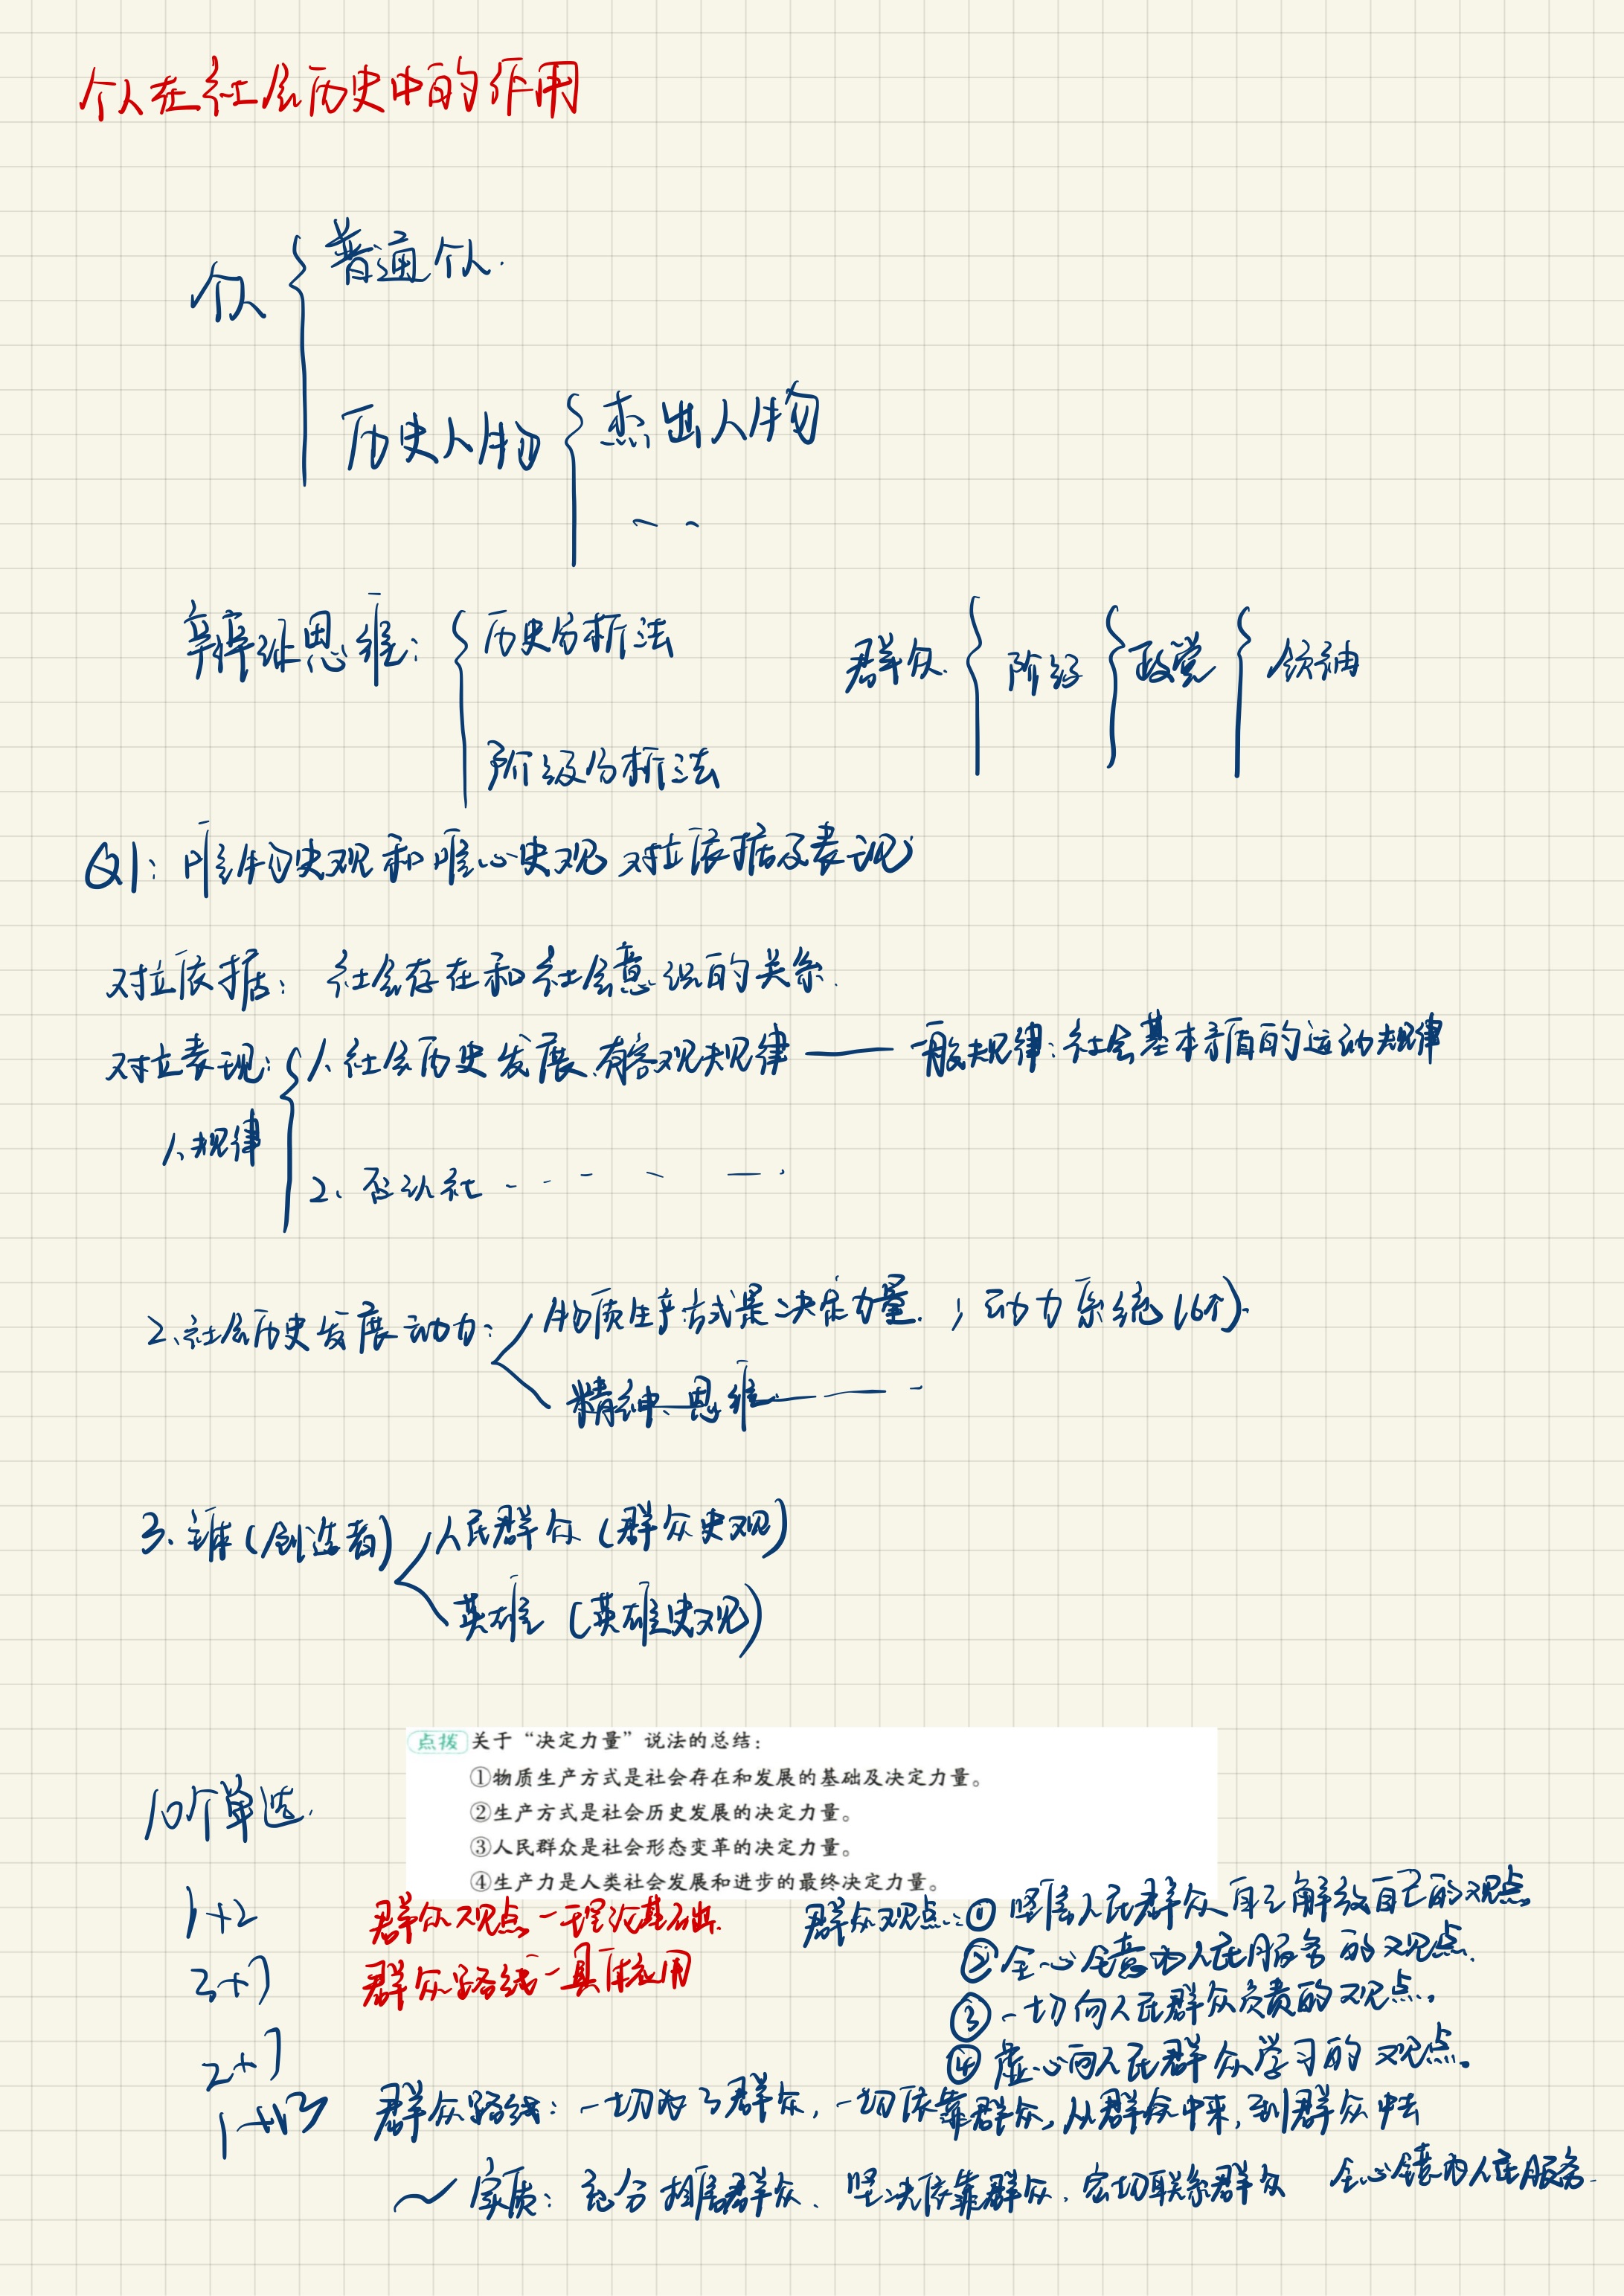 个人在社会历史中的作用
个人
普通个人.
历史人物
杰出人物
辩证思维:
历史分析法
阶级分析法
群众
阶级
政党
领袖
Q1: 唯物史观和唯心史观对立依据及表现
对立依据: 社会存在和社会意识的关系.
对立表现: 1、社会历史发展有客观规律 —— 一般规律: 社会基本矛盾的运动规律
1、规律
2、否认社
2、社会历史发展动力:
物质生产方式是决定力量. ; 动力系统 (6个).
精神、思维
3、主体(创造者)
人民群众 (群众史观)
英雄 (英雄史观)
点拨 关于“决定力量”说法的总结:
①物质生产方式是社会存在和发展的基础及决定力量。
②生产方式是社会历史发展的决定力量。
③人民群众是社会形态变革的决定力量。
④生产力是人类社会发展和进步的最终决定力量。
10个单选.
1+2
2+
群众观点 — 理论基础.
群众路线 — 具体应用
群众观点: ① 坚信人民群众自己解放自己的观点.
② 全心全意为人民服务的观点.
③ 一切向人民群众负责的观点。
④ 虚心向人民群众学习的观点。
群众路线: 一切为了群众, 一切依靠群众, 从群众中来, 到群众中去
~ 实质: 充分相信群众、坚决依靠群众、密切联系群众 全心全意为人民服务.